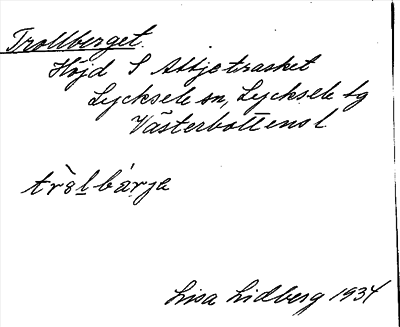 Trollberget.
Höjd S Attjetrasket
Lycksele sn, Lycksele lg
Västerbottens l
trò̀lbárja
Lisa Lidberg 1934